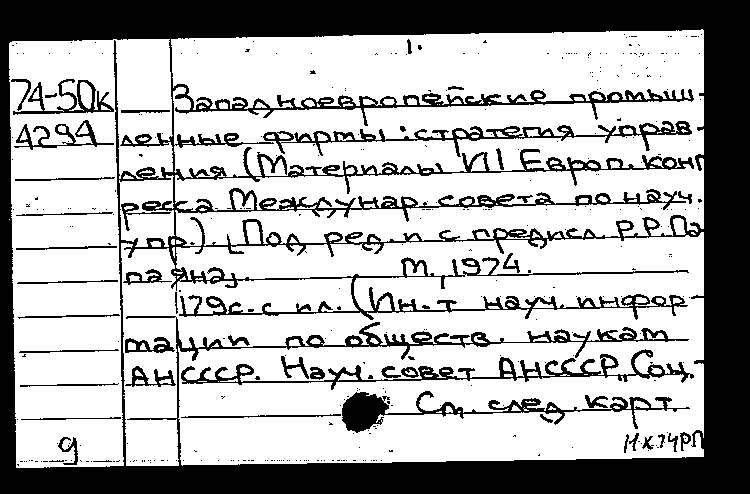 1.
74-50к Западноевропейские промыш-
4294 ленные фирмы: стратегия управ-
ления. (Материалы VII Европ. конг
ресса Междунар. совета по науч.
упр.). [Под ред. и с предисл. Р.Р. Па
паяна]. М., 1974.
179с. с ил. (Ин-т науч. инфор-
мации по обществ. наукам
АНСССР. Науч. совет АНСССР „Соц.-
См. след. карт.
9